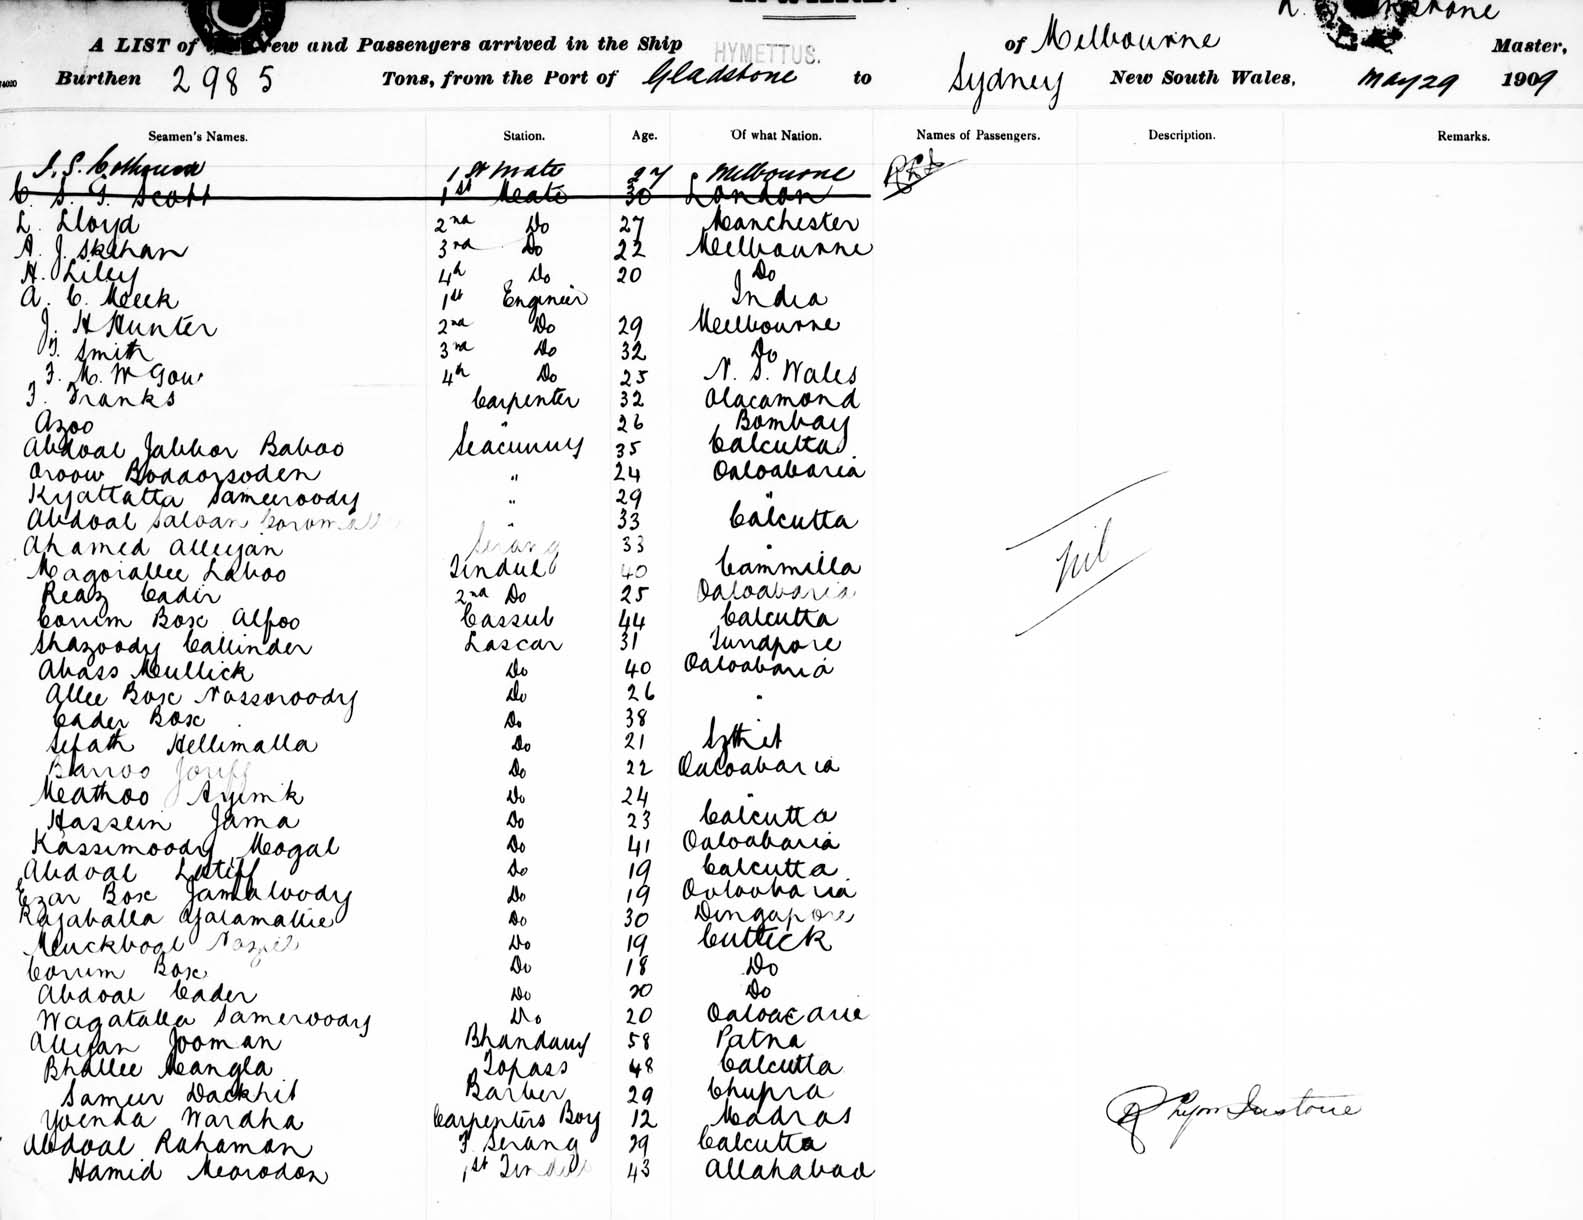 A LIST of Crew and Passengers arrived in the Ship HYMETTUS. of Melbourne Master,
Burthen 2985 Tons, from the Port of Gladstone to Sydney New South Wales, May 29 1909
Seamen's Names. Station. Age. Of what Nation. Names of Passengers. Description. Remarks.
J. S. Colhoun 1st Mate 27 Melbourne
C. S. G. Scott 1st Mate 30 London
L. Lloyd 2nd Do 27 Manchester
A. J. Skehan 3rd Do 22 Melbourne
H. Liley 4th Do 20 Do
A. C. Meek 1st Engineer India
J. H Hunter 2nd Do 29 Melbourne
T. Smith 3rd Do 32 Do
F. M. 4th Do 25 N. S. Wales
F. Franks Carpenter 32 Olacamond
Azoo " 26 Bombay
Abdoal Jabbor Baboo Seacunny 35 Calcutta
Oroow Bodoorsoden " 24 Oaloabaria
Kyattatta Sameeroody " 29 "
Abdoal Saloan " 33 Calcutta
Ahamed Alleyjan Serang 33 "
Magoiallee Laboo Tindul 40 Cammilla
Reaz Cadir 2nd Do 25 Oaloabaria
Corim Box Alfoo Cassub 44 Calcutta
Shazoody Callinder Lascar 31 Turrdpore
Abass Mullick Do 40 Oaloabaria
Allee Box Nassoroody Do 26 "
Cader Box Do 38
Sefath Hellimalla Do 21
Barroo Joriff Do 22 Oaloabaria
Meathoo Ayimk Do 24 "
Hassein Jama Do 23 Calcutta
Kassimoody Mogal Do 41 Oaloabaria
Abdoal Latiff Do 19 Calcutta
Ezar Box Jamaloody Do 19 Ooloobaria
Rajaballa Do 30 Dingapore
Muckbool Do 19 Cuttick
Corrim Box Do 18 Do
Abdoal Cader Do 20 Do
Wagatalla Sameroody Do 20
Allijan Jooman Bhandary 58 Patna
Bhallee Mangla Topass 48 Calcutta
Sameer Dackhit Barber 29 Chupra
Yoenda Wardha Carpenters Boy 12 Madras
Abdoal Rahaman F. Serang 29 Calcutta
Hamid Moorodon 1st Tindul 43 Allahabad
Nil